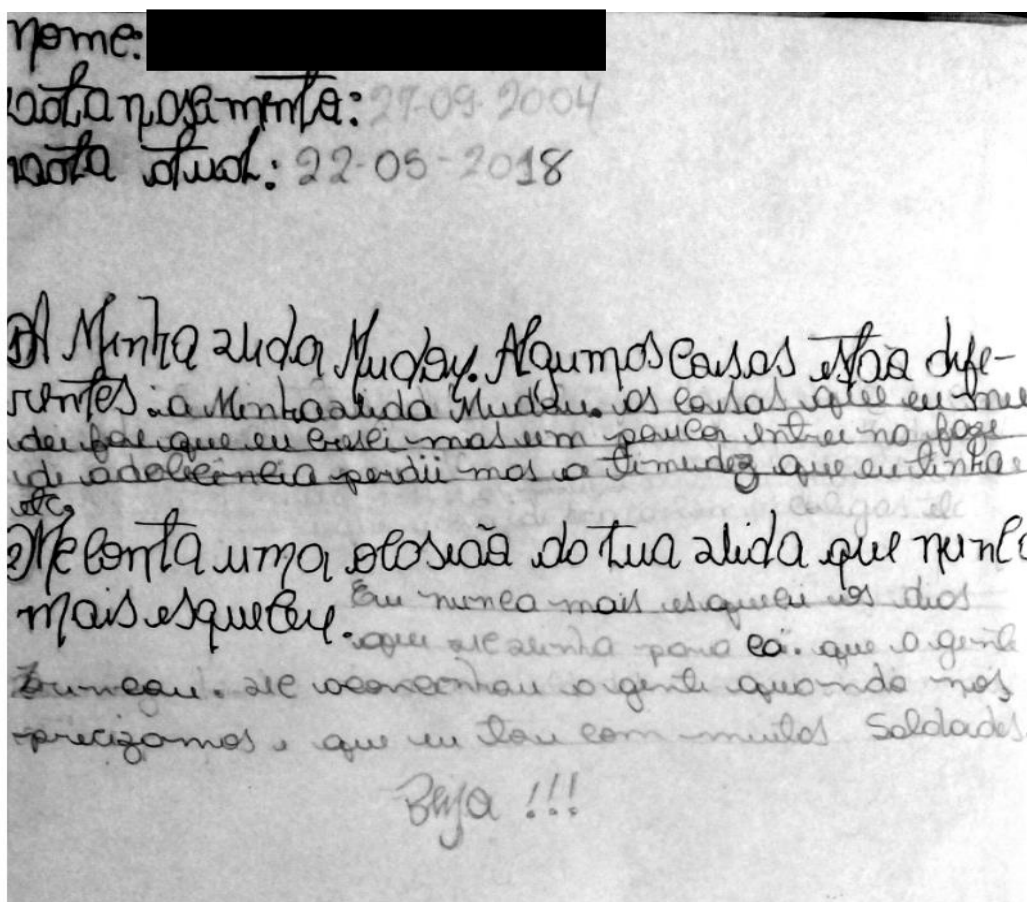 nome:
data nasamento: 27-09-2004
data atual: 22-05-2018
1) A Minha vida Mudou. Algumas Coisas estão dife-
rentes. a Minha vida Mudou. as coisas que eu mu
dei foi que eu cresci mas um pouco entrei na faze
de adolecencia perdii mas a timudez que eu tinha
etc.
2) Me conta uma ocosião da tua vida que nunca
mais esqueceu. Eu nunca mais esqueci os dias
que ve vinha para cá. que a gente
brincou. ve aconcenhou a gente quando nós
precizamos e que eu tou com muitas Saldades.
Beija !!!